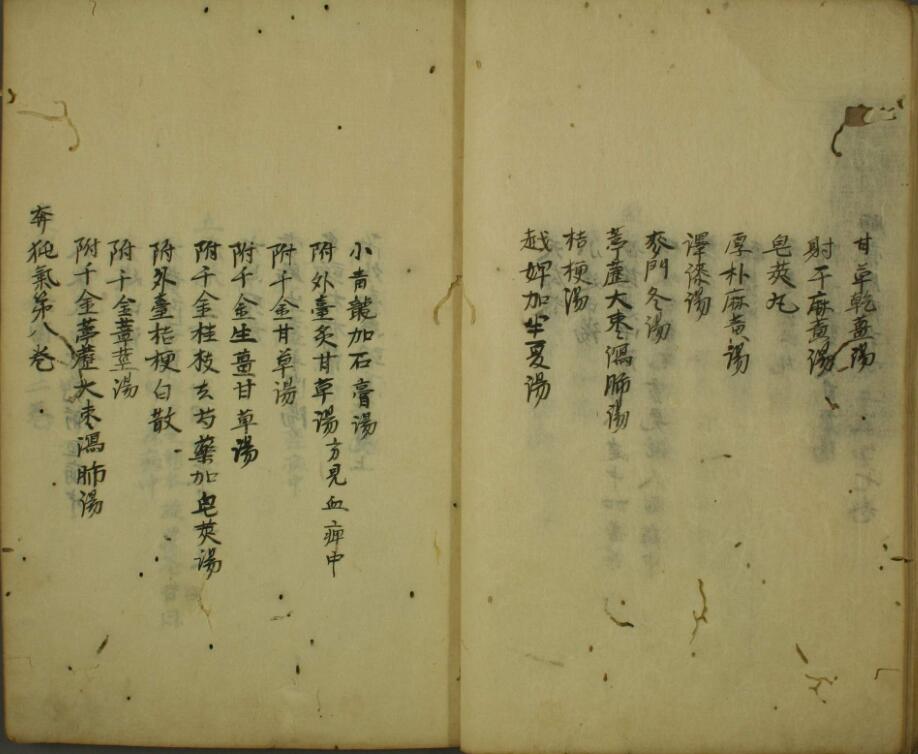 甘草乾薑湯
射干麻黄湯
皂莢丸
厚朴麻黄湯
澤漆湯
麥門冬湯
葶藶大棗瀉肺湯
桔梗湯
越婢加半夏湯
小青龍加石膏湯
附外臺炙甘草湯方見血痺中
附千金甘草湯
附千金生薑甘草湯
附千金桂枝去芍藥加皂莢湯
附外臺桔梗白散
附千金葦莖湯
附千金葶藶大棗瀉肺湯
奔㹠氣第八卷